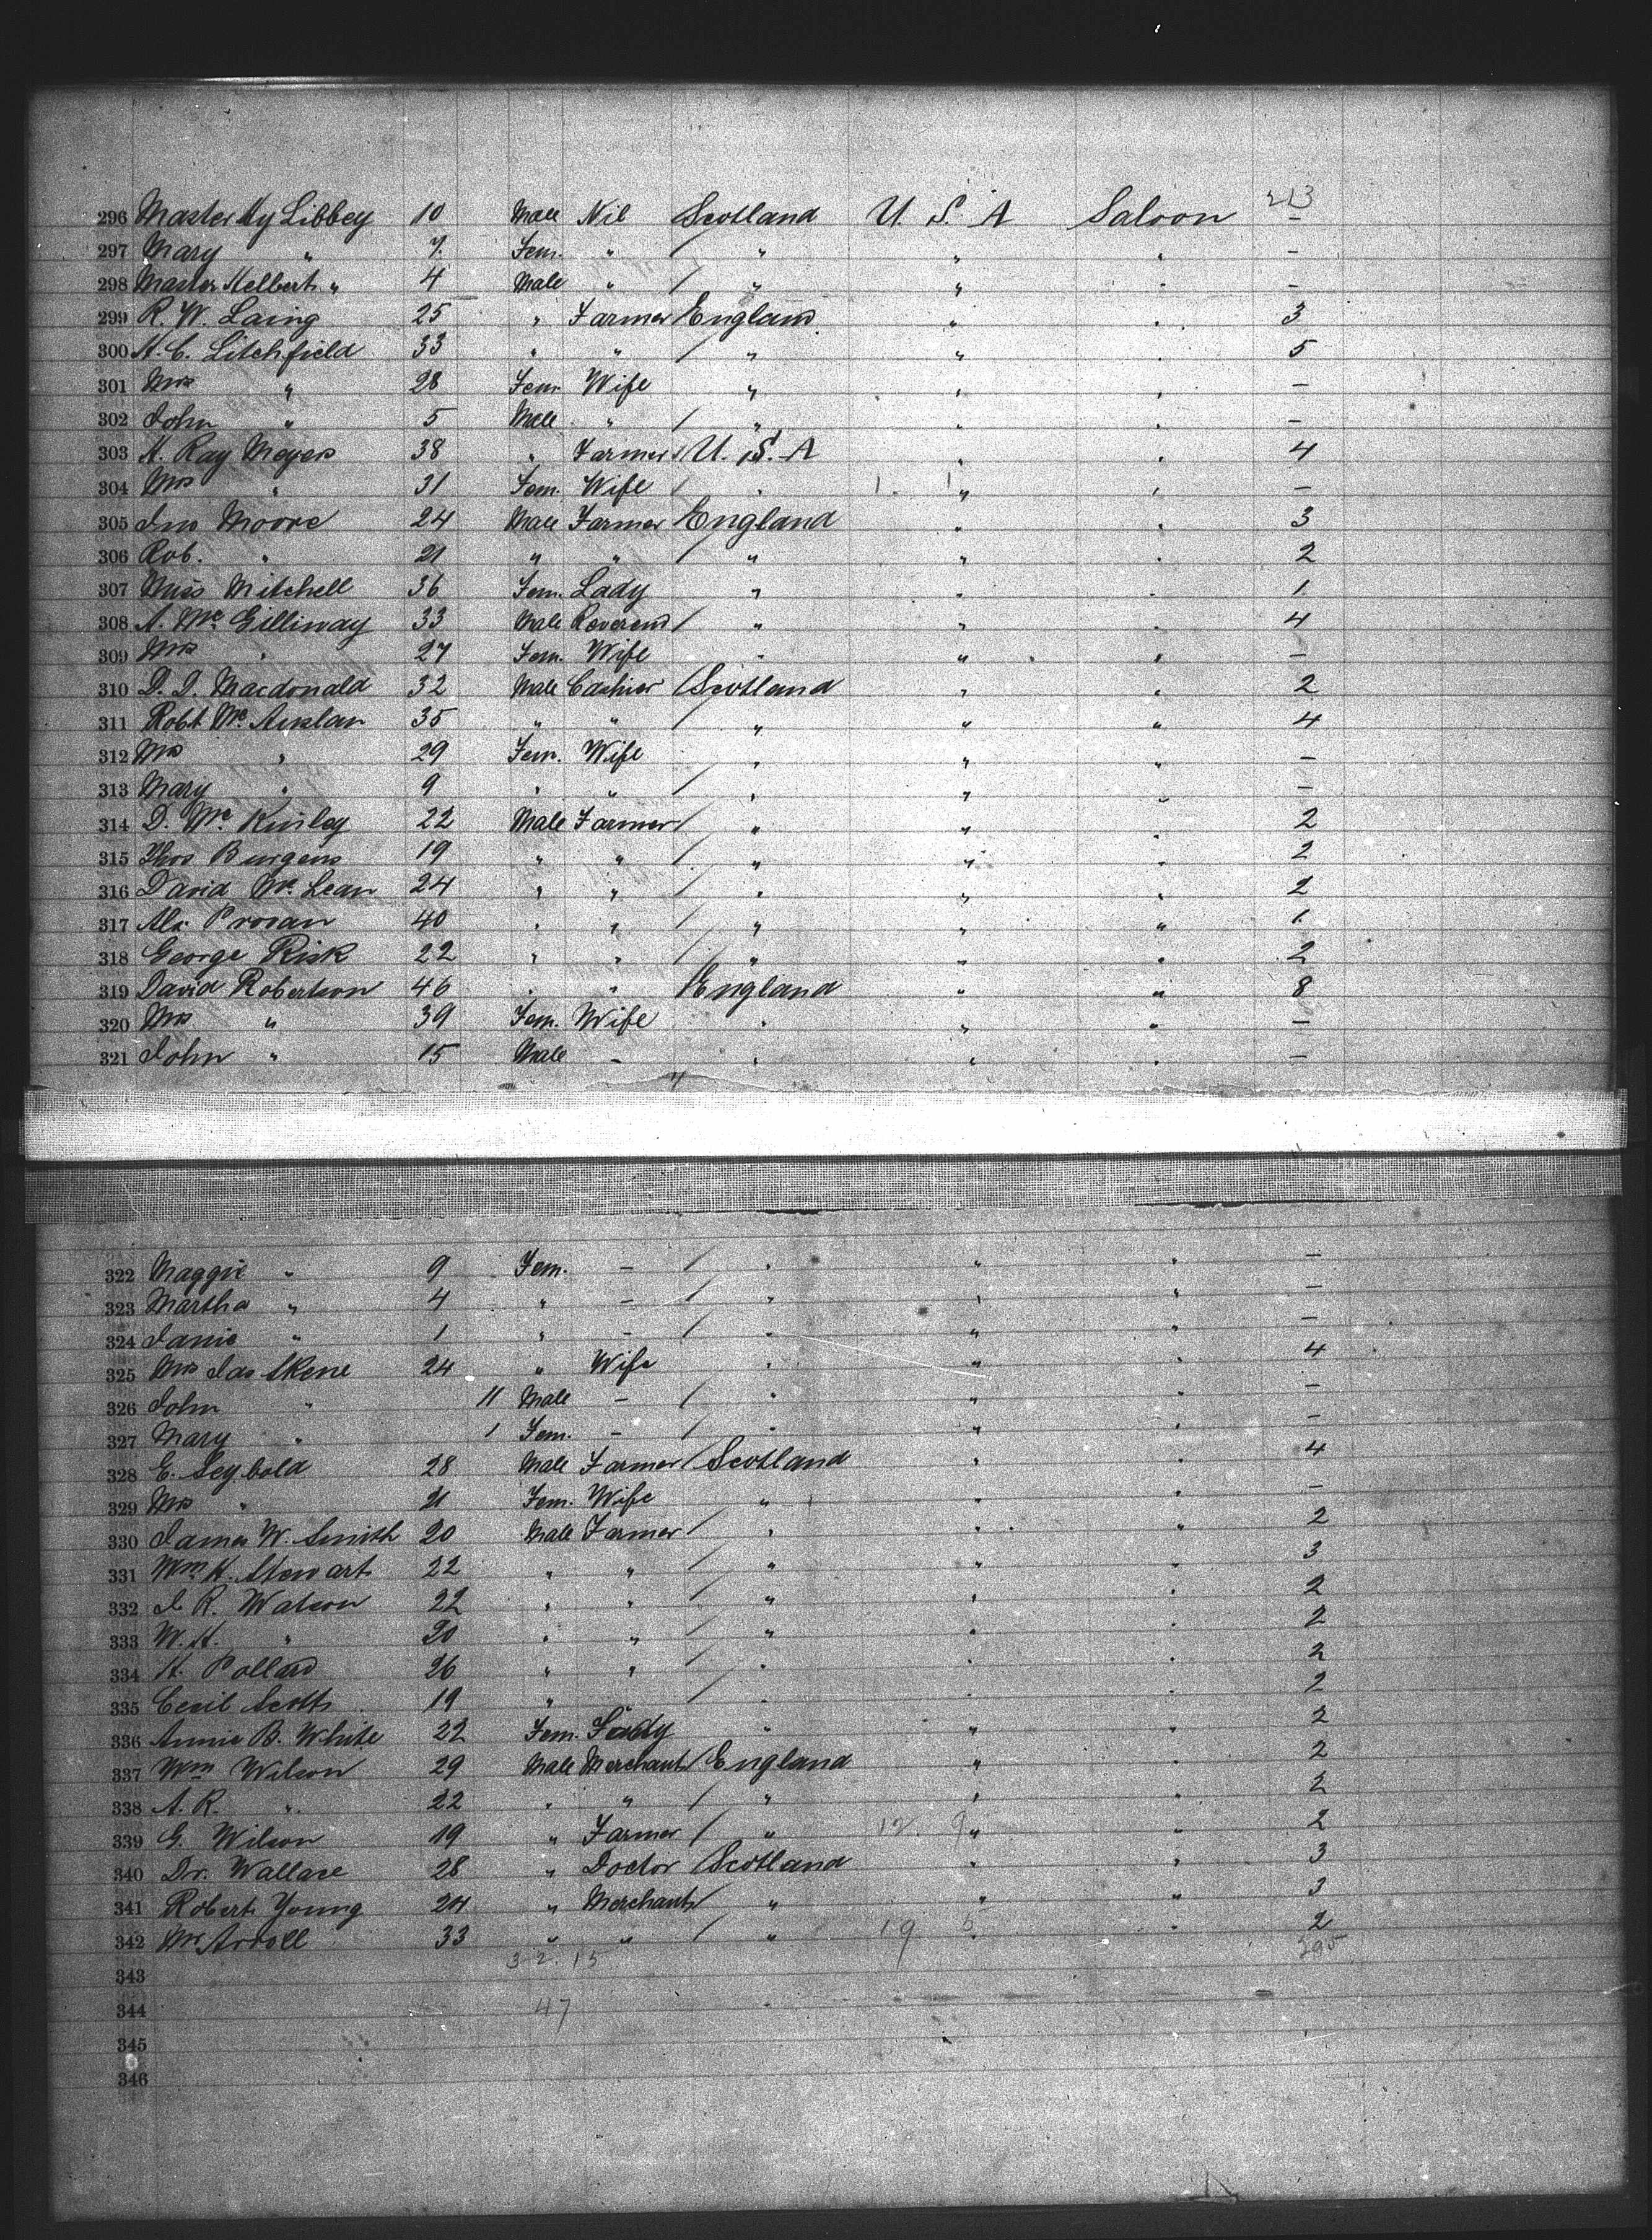 213
296 Master Hy Libbey 10 Male Nil Scotland U. S. A Saloon –
297 Mary " 7 Fem. " " " " –
298 Master Helbert " 4 Male " " " " –
299 R. W. Laing 25 " Farmer England " " 3
300 H. C. Litchfield 33 " " " " " 5
301 Mrs " 28 Fem. Wife " " " –
302 John " 5 Male " " " " –
303 H. Ray Meyers 38 " Farmer U. S. A " " 4
304 Mrs " 31 Fem. Wife " " " –
305 Jno Moore 24 Male Farmer England " " 3
306 Rob. " 21 " " " " " 2
307 Miss Mitchell 36 Fem. Lady " " " 1
308 A. Mc Gilliway 33 Male Reverend " " " 4
309 Mrs " 27 Fem. Wife " " " –
310 D. D. Macdonald 32 Male Cashier Scotland " " 2
311 Robt Mc Auslan 35 " " " " " 4
312 Mrs " 29 Fem. Wife " " " –
313 Mary " 9 " " " " " –
314 D. Mc Kinley 22 Male Farmer " " " 2
315 Thos Burgens 19 " " " " " 2
316 David Mc Lean 24 " " " " " 2
317 Alx Provan 40 " " " " " 1
318 George Risk 22 " " " " " 2
319 David Robertson 46 " " England " " 8
320 Mrs " 39 Fem. Wife " " " –
321 John " 15 Male – " " " –
322 Maggie " 9 Fem. – " " " –
323 Martha " 4 " – " " " –
324 Janie " 1 " – " " " –
325 Mrs Jas Skene 24 " Wife " " " 4
326 John " 11 Male – " " " –
327 Mary " 1 Fem. – " " " –
328 E. Seybold 28 Male Farmer Scotland " " 4
329 Mrs " 21 Fem. Wife " " " –
330 James W. Smith 20 Male Farmer " " " 2
331 Wm H. Stewart 22 " " " " " 3
332 J. R. Watson 22 " " " " " 2
333 W. H. " 20 " " " " " 2
334 H. Pollard 26 " " " " " 2
335 Cecil Scott 19 " " " " 2
336 Annie B. White 22 Fem. Lady " " " 2
337 Wm Wilson 29 Male Merchant England " " 2
338 A. R. " 22 " " " " " 2
339 G. Wilson 19 " Farmer " 12. 9 " " 2
340 Dr. Wallace 28 " Doctor Scotland " " 3
341 Robert Young 24 " Merchant " " " 3
342 Mr Arroll 33 " " " 19 " " 2
343 32.15 295
344 47
345
346